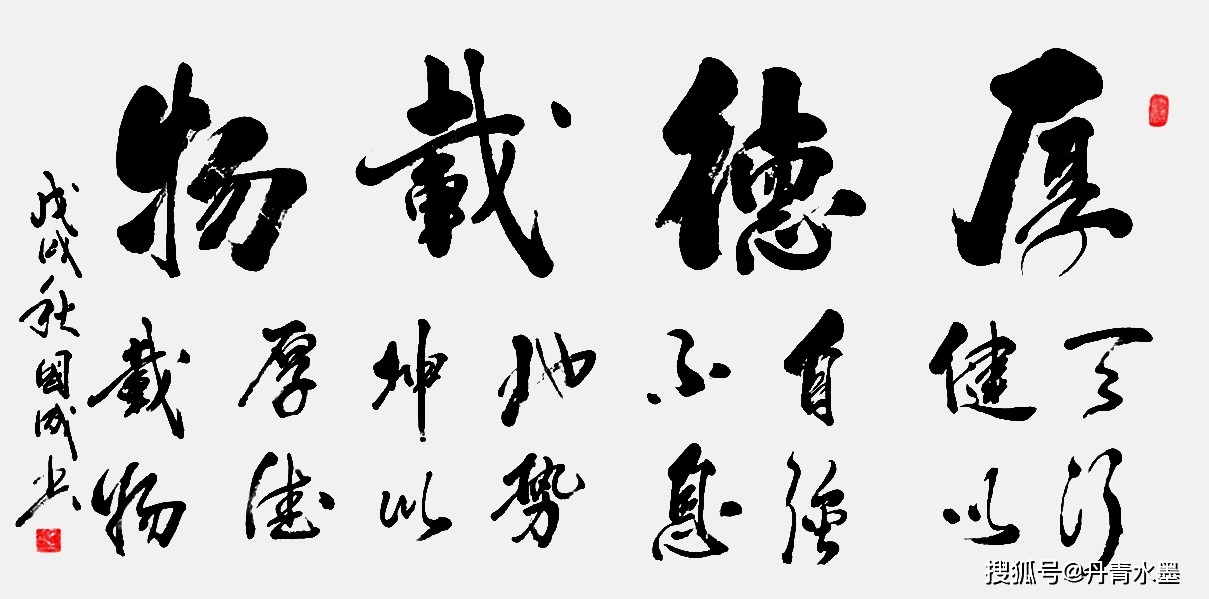 厚德載物
天行
健以
自強
不息
地勢
坤以
厚德
載物
戊戌秋國成書
搜狐号@丹青水墨